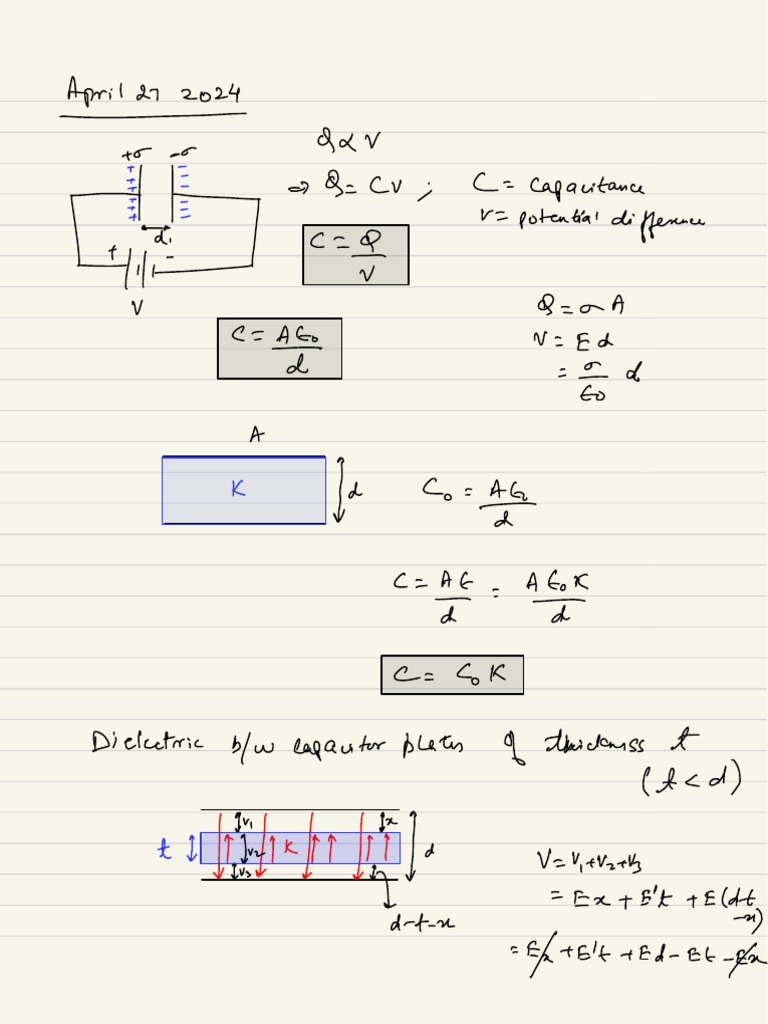 April 27 2024
Q ∝ V
+σ -σ
⇒ Q = CV ; C = Capacitance
V = potential difference
d
+ -
V
C = Q/V
Q = σ A
C = A ε₀/d
V = E d
= σ/ε₀ d
A
K
d
C₀ = A ε₀/d
C = A ε/d = A ε₀ K/d
C = C₀ K
Dielectric b/w capacitor plates of thickness t
(t < d)
V₁ x
t V₂ K d
V₃
d-t-x
V = V₁+V₂+V₃
= Ex + E't + E(d-t
-x)
= Ex + E't + Ed - Et - Ex